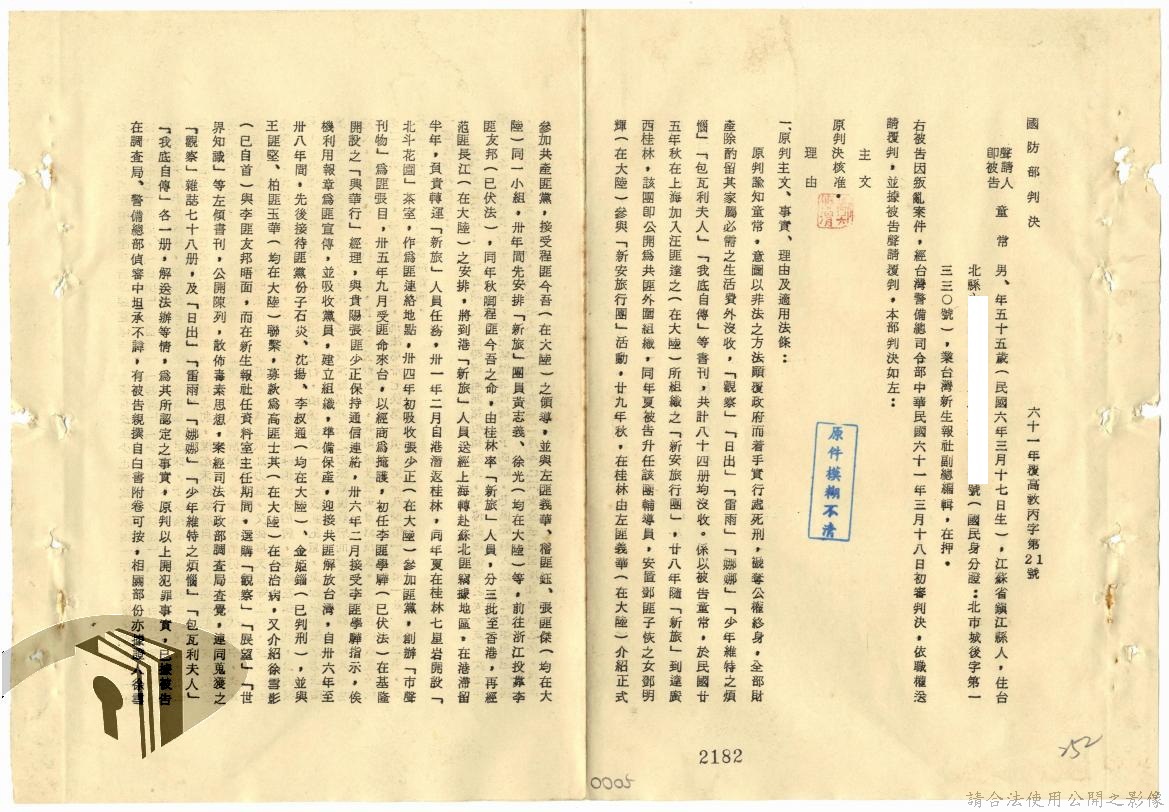 國防部判決
六十一年覆高教丙字第21號
聲請人
即被告 童常 男、年五十五歲(民國六年三月十七日生),江蘇省鎮江縣人,住台
北縣 號(國民身分證:北市城後字第一
三三〇號),業台灣新生報社副總編輯,在押。
右被告因叛亂案件,經台灣警備總司令部中華民國六十一年三月十八日初審判決,依職權送
請覆判,並據被告聲請覆判,本部判決如左:
主文
原判決核准。
理由
一、原判主文、事實、理由及適用法條:
原判諭知童常,意圖以非法之方法顛覆政府而着手實行處死刑,褫奪公權終身,全部財
產除酌留其家屬必需之生活費外沒收,「觀察」「日出」「雷雨」「娜娜」「少年維特之煩
惱」「包瓦利夫人」「我底自傳」等書刊,共計八十四册均沒收。係以被告童常,於民國廿
五年秋在上海加入汪匪達之(在大陸)所組織之「新安旅行團」,廿八年隨「新旅」到達廣
西桂林,該團即公開為共匪外圍組織,同年夏被告升任該團輔導員,安置鄧匪子恢之女鄧明
輝(在大陸)參與「新安旅行團」活動,廿九年秋,在桂林由左匪義華(在大陸)介紹正式
參加共產匪黨,接受程匪今吾(在大陸)之領導,並與左匪義華、稽匪鈺、張匪傑(均在大
陸)同一小組,卅年間先安排「新旅」團員黃志義、徐光(均在大陸)等,前往浙江投靠李
匪友邦(已伏法),同年秋調程匪今吾之命,由桂林率「新旅」人員,分三批至香港,再經
范匪長江(在大陸)之安排,將到港「新旅」人員送經上海轉赴蘇北匪竊據地區,在港滯留
半年,負責轉運「新旅」人員任務,卅一年二月自港潛返桂林,同年夏在桂林七星岩開設「
北斗花園」茶室,作為匪連絡地點,卅四年初吸收張少正(在大陸)參加匪黨,創辦「市聲
刊物」為匪張目,卅五年九月受匪命來台,以經商為掩護,初任李匪學驊(已伏法)在基隆
開設之「興華行」經理,與貴陽張匪少正保持通信連絡,卅六年二月接受李匪學驊指示,俟
機利用報章為匪宣傳,並吸收黨員,建立組織,準備保產,迎接共匪解放台灣,自卅六年至
卅八年間,先後接待匪黨份子石炎、沈揚、李叔通(均在大陸)、金姬鎦(已判刑),並與
王匪堅、柏匪玉華(均在大陸)聯繫,募款為高匪士其(在大陸)在台治病,又介紹徐雪影
(已自首)與李匪友邦晤面,而在新生報社任資料室主任期間,選購「觀察」「展望」「世
界知識」等左傾書刊,公開陳列,散佈毒素思想,案經司法行政部調查局查覺,連同蒐獲之
「觀察」雜誌七十八册,及「日出」「雷雨」「娜娜」「少年維特之煩惱」「包瓦利夫人」
「我底自傳」各一册,解送法辦等情,為其所認定之事實,原判以上開犯罪事實,已據被告
在調查局、警備總部偵審中坦承不諱,有被告親撰自白書附卷可按,相關部份亦據證人徐雪
原件模糊不清
2182
0005
252
請合法使用公開之影像